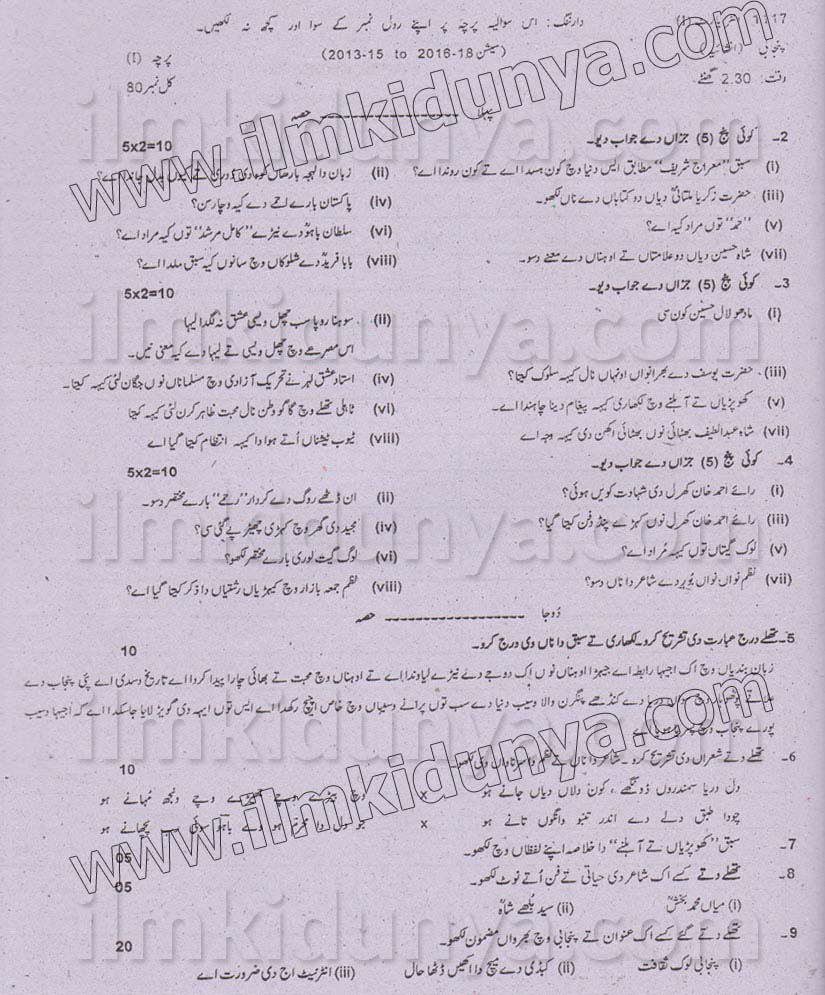 1117 وارننگ: اس سوالیہ پرچہ پر اپنے رول نمبر کے سوا اور کچھ نہ لکھیں۔ (I)
پنجابی (سیشن 2013-15 to 2016-18) پرچہ (I)
وقت: 2.30 گھنٹے کل نمبر 80
حصہ پہلا
2۔ کوئی پنج (5) جزاں دے جواب دیو۔ 5x2=10
(i) سبق "معراج شریف" مطابق ایس دنیا وچ کون ہسدا اے تے کون روندا اے؟ (ii) زبان دا لہجہ بارھاں کوہ دی دوری تے کیوں بدل جاندا اے؟
(iii) حضرت زکریا ملتانیؒ دیاں دو کتاباں دے ناں لکھو۔ (iv) پاکستان بارے لمے دے کیہ وچار سن؟
(v) "حمد" توں مراد کیہ اے؟ (vi) سلطان باہوؒ دے نیڑے "کامل مرشد" توں کیہ مراد اے؟
(vii) شاہ حسین دیاں دو علامتاں تے اوہناں دے معنے دسو۔ (viii) بابا فریدؒ دے شلوکاں وچ سانوں کیہ سبق ملدا اے؟
3۔ کوئی پنج (5) جزاں دے جواب دیو۔ 5x2=10
(i) مادھو لال حسین کون سی (ii) سوہنا روپا سب چھل ویسی عشق نہ لگدا لیہا
اس مصرعے وچ چھل ویسی تے لیہا دے کیہ معنی نیں۔
(iii) حضرت یوسف دے بھرانواں اونہاں نال کیہہ سلوک کیتا؟ (iv) استاد عشق لہر نے تحریک آزادی وچ مسلماناں نوں جگان لئی کیہہ کیتا۔
(v) کھوپڑیاں تے آہلنے وچ لکھاری کیہہ پیغام دینا چاہندا اے۔ (vi) ٹاہلی تھلے وچ گاگو وطن نال محبت ظاہر کرن لئی کیہہ کیتا
(vii) شاہ عبدالطیف بھٹائی نوں بھٹائی اکھن دی کیہہ وجہ اے (viii) ٹیوب ٹیشناں اُتے ہوا دا کیہہ انتظام کیتا گیا اے
4۔ کوئی پنج (5) جزاں دے جواب دیو۔ 5x2=10
(i) رائے احمد خان کھرل دی شہادت کویں ہوئی؟ (ii) ان ڈٹھے روگ دے کردار "رحمے" بارے مختصر دسو۔
(iii) رائے احمد خان کھرل نوں کہڑے پنڈ دفن کیتا گیا؟ (iv) مجید دی گھر وچ کہڑی چھیڑ پے گئی سی؟
(v) لوک گیتاں توں کیہہ مُراد اے؟ (vi) لوگ گیت لوری بارے مختصر لکھو؟
(vii) نظم نواں نواں بُوہر دے شاعر دا ناں دسو؟ (viii) نظم جمعہ بازار وچ کیہڑیاں رشتیاں دا ذکر کیتا گیا اے؟
دُوجا حصہ
5۔ تھلے درج عبارت دی تشریح کرو۔ لکھاری تے سبق دا ناں وی درج کرو۔ 10
زبان بندیاں وچ اک اجیہا رابطہ اے جیہڑا اوہناں نوں اِک دوجے دے نیڑے لیاوندا اے تے اوہناں وچ محبت تے بھائی چارا پیدا کردا اے تاریخ دسدی اے پئی پنجاب دے
علاقے پوٹھوہار وچ سواں دریا دے کنڈھے پنگرن والا وسیب دنیا دے سب توں پرانے وسیباں وچ خاص اچیچ رکھدا اے ایس توں ایہہ دی گویڑ لایا جاسکدا اے کہ اجیہا وسیب
پورے پنجاب وچ
6۔ تھلے دتے شعراں دی تشریح کرو۔ شاعر دا ناں تے نظم دا سرناواں وی لکھو۔ 10
دل دریا سمندروں ڈونگھے ، کون دلاں دیاں جانے ہو x وچے بیڑے وچے جھیڑے وچے ونجھ مہانے ہو
چودا طبق دلے دے اندر تنبو وانگوں تانے ہو x جو دل دا محرم ہووے باہو سوئی رب پچھانے ہو
7۔ سبق "کھوپڑیاں تے آہلنے" دا خلاصہ اپنے لفظاں وچ لکھو۔ 05
8۔ تھلے دتے کسے اک شاعر دی حیاتی تے فن اُتے نوٹ لکھو۔ 05
(i) میاں محمد بخشؒ (ii) سید بلھے شاہؒ
9۔ تھلے دتے گئے کسے اک عنوان تے پنجابی وچ بھرواں مضمون لکھو۔ 20
(i) پنجابی لوک ثقافت (ii) کبڈی دے میچ دا اکھیں ڈٹھا حال (iii) انٹرنیٹ اج دی ضرورت اے
www.ilmkidunya.com